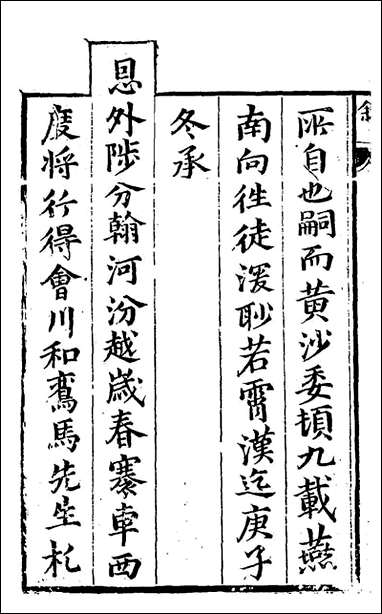 所自也嗣而黄沙委頓九載燕
南向徃徒湲眇若霄漢迄庚子
冬承
恩外陟分翰河汾越嵗春褰車西
度将行得會川和鸞馬先生札